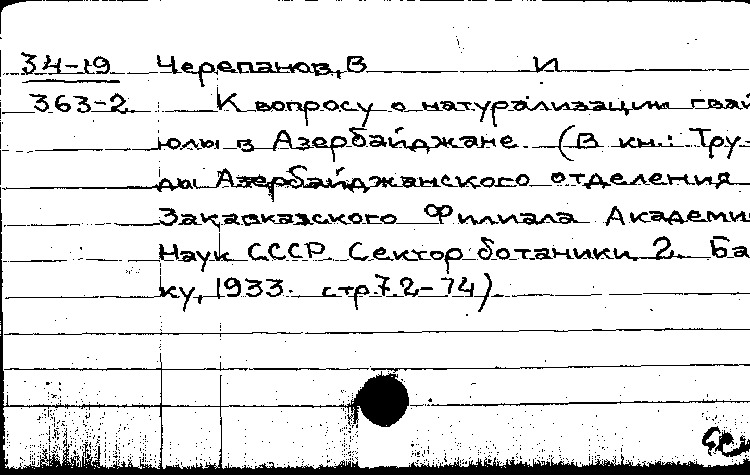 34-19 Черепанов, В И
363-2. К вопросу о натурализации гвай
юлы в Азербайджане. (В кн.: Тру-
ды Азербайджанского отделения
Закавказского Филиала Академии
Наук СССР. Сектор ботаники. 2. Ба
ку, 1933. стр. 72-74).